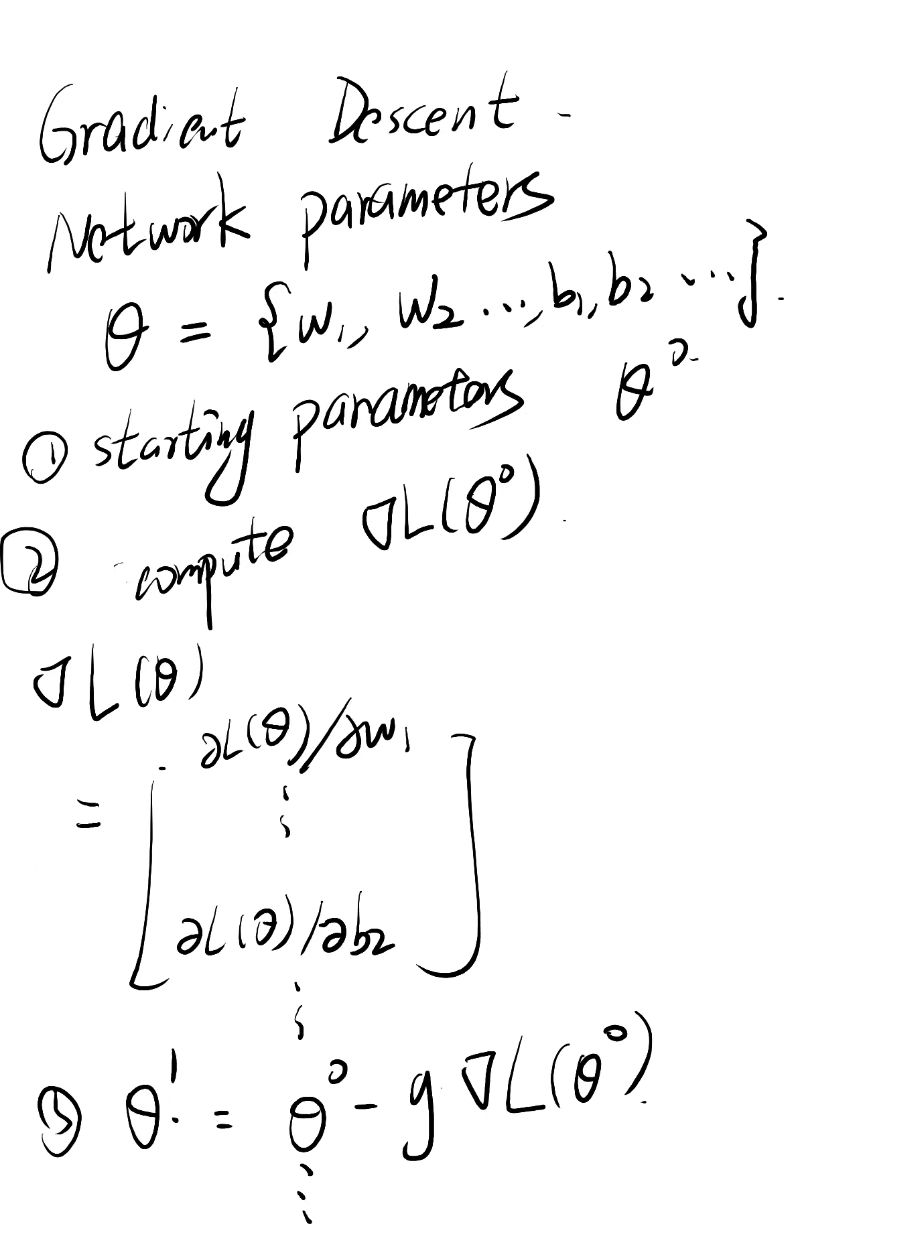 Gradient Descent.
Network parameters
θ = {w₁, w₂ ..., b₁, b₂ ...}.
① starting parameters θ⁰.
② compute ∇L(θ⁰).
∇L(θ)
= [ ∂L(θ)/∂w₁
⋮
∂L(θ)/∂b₂ ]
⋮
③ θ¹. = θ⁰ - g ∇L(θ⁰).
⋮